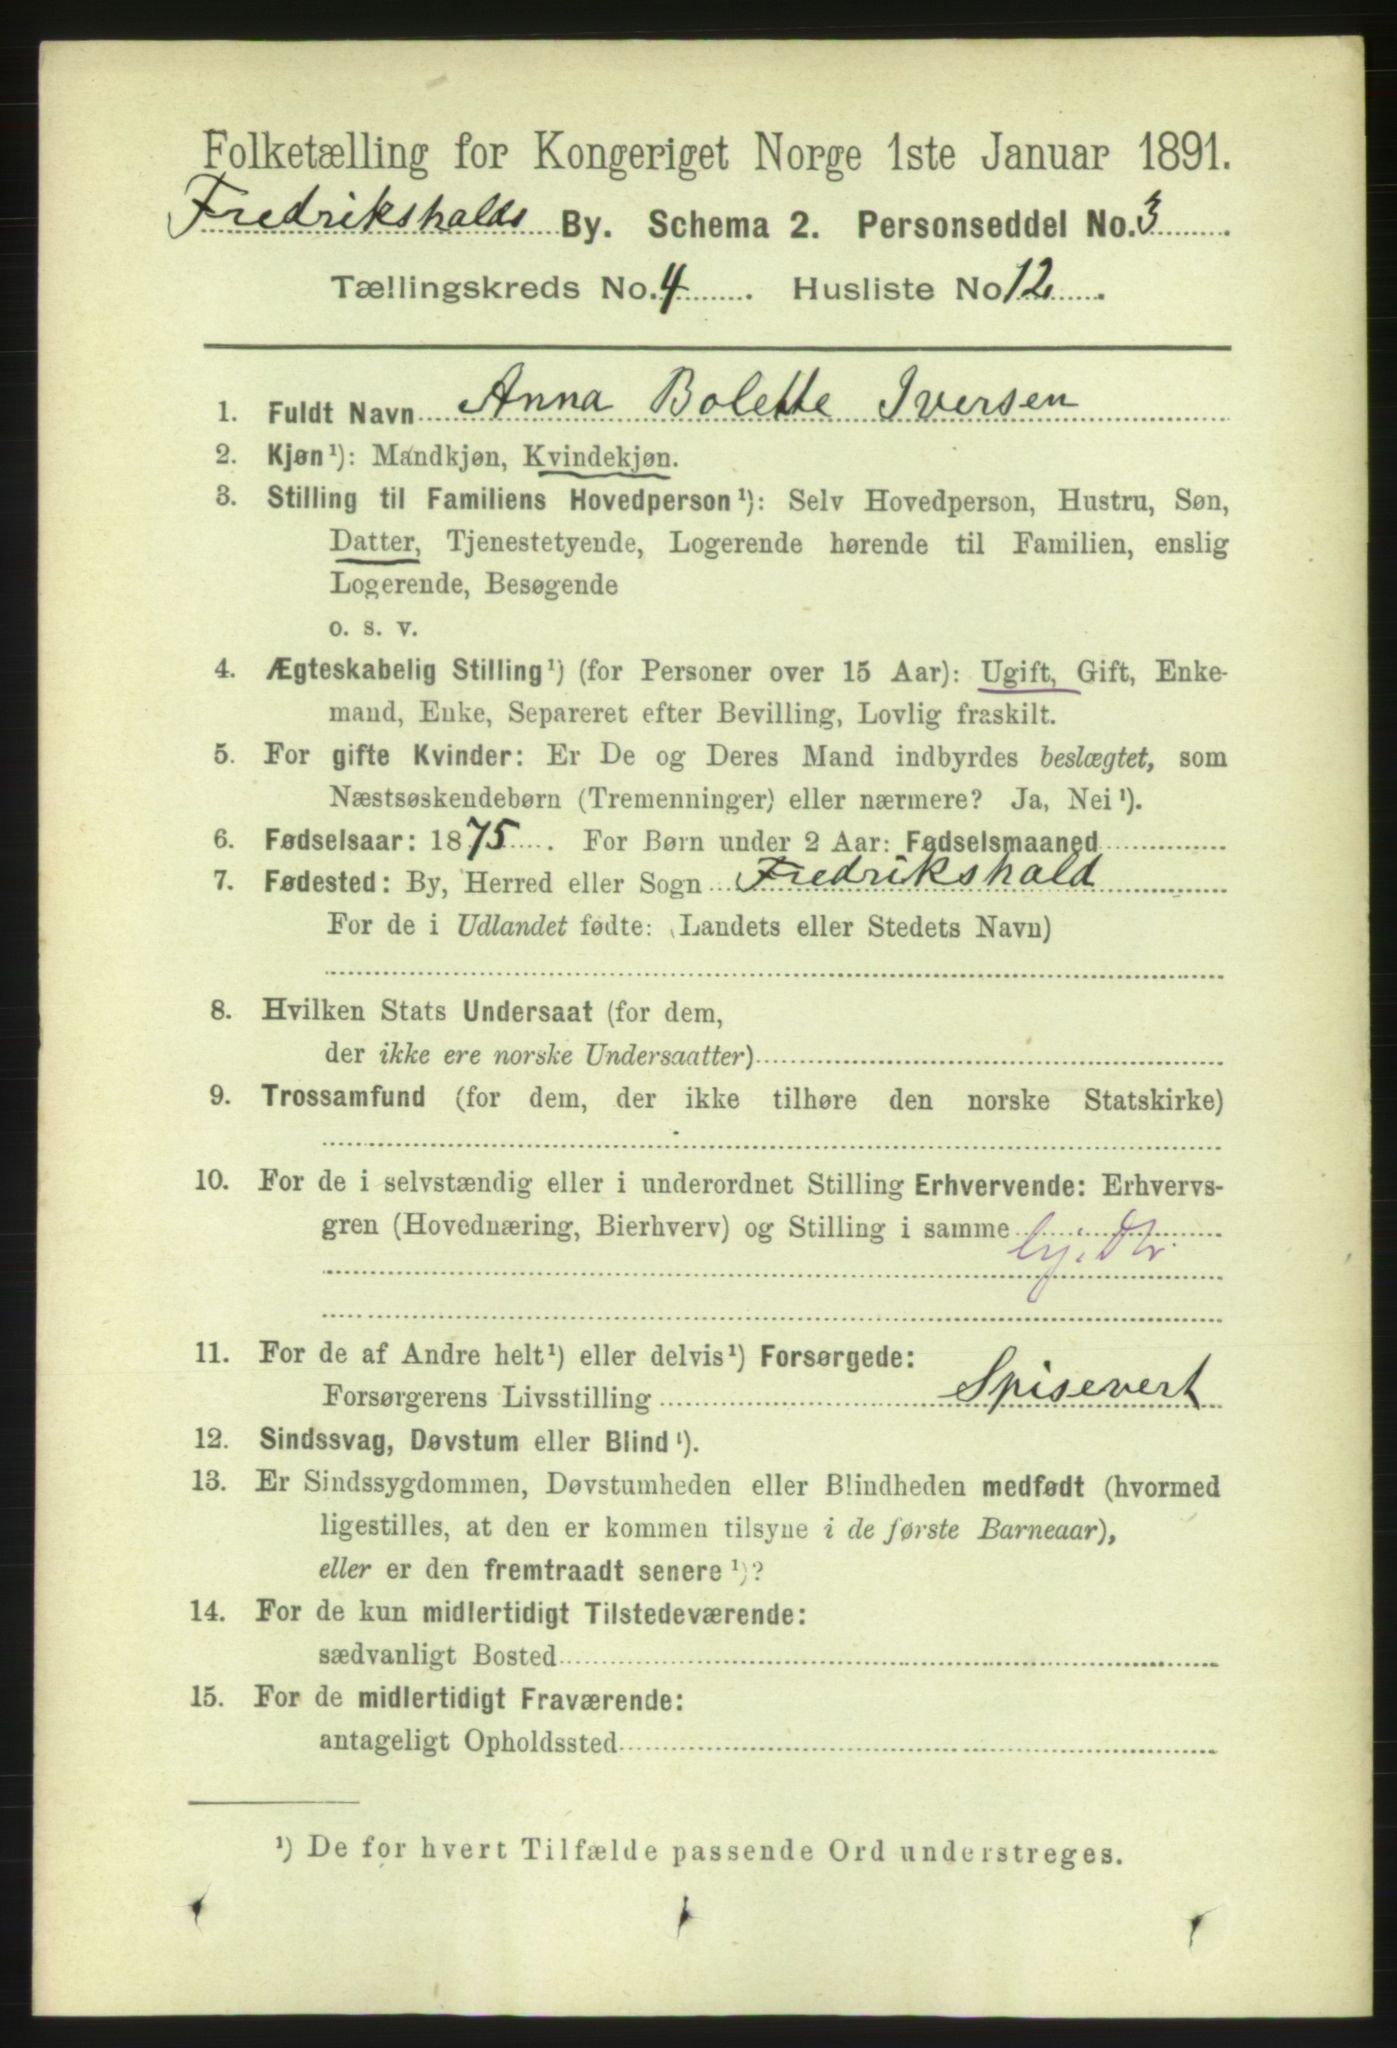 Folketælling for Kongeriget Norge 1ste Januar 1891.
Fredrikshalds By. Schema 2. Personseddel No. 3
Tællingskreds No. 4. Husliste No 12.
1. Fuldt Navn Anna Bolette Iversen
2. Kjøn¹): Mandkjøn, Kvindekjøn.
3. Stilling til Familiens Hovedperson¹): Selv Hovedperson, Hustru, Søn,
Datter, Tjenestetyende, Logerende hørende til Familien, enslig
Logerende, Besøgende
o. s. v.
4. Ægteskabelig Stilling¹) (for Personer over 15 Aar): Ugift, Gift, Enke-
mand, Enke, Separeret efter Bevilling, Lovlig fraskilt.
5. For gifte Kvinder: Er De og Deres Mand indbyrdes beslægtet, som
Næstsøskendebørn (Tremenninger) eller nærmere? Ja, Nei¹).
6. Fødselsaar: 1875. For Børn under 2 Aar: Fødselsmaaned
7. Fødested: By, Herred eller Sogn Fredrikshald
For de i Udlandet fødte: (Landets eller Stedets Navn)
8. Hvilken Stats Undersaat (for dem,
der ikke ere norske Undersaatter)
9. Trossamfund (for dem, der ikke tilhøre den norske Statskirke)
10. For de i selvstændig eller i underordnet Stilling Erhvervende: Erhvervs-
gren (Hovednæring, Bierhverv) og Stilling i samme
11. For de af Andre helt¹) eller delvis¹) Forsørgede:
Forsørgerens Livsstilling Spisevert
12. Sindssvag, Døvstum eller Blind¹).
13. Er Sindssygdommen, Døvstumheden eller Blindheden medfødt (hvormed
ligestilles, at den er kommen tilsyne i de første Barneaar),
eller er den fremtraadt senere¹)?
14. For de kun midlertidigt Tilstedeværende:
sædvanligt Bosted
15. For de midlertidigt Fraværende:
antageligt Opholdssted
¹) De for hvert Tilfælde passende Ord understreges.